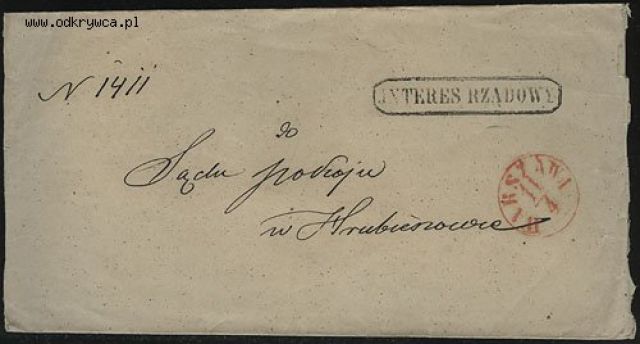 www.odkrywca.pl
N 1411
INTERES RZĄDOWY
do
Sądu pokoju
w Hrubieszowie
WARSZAWA
11/4